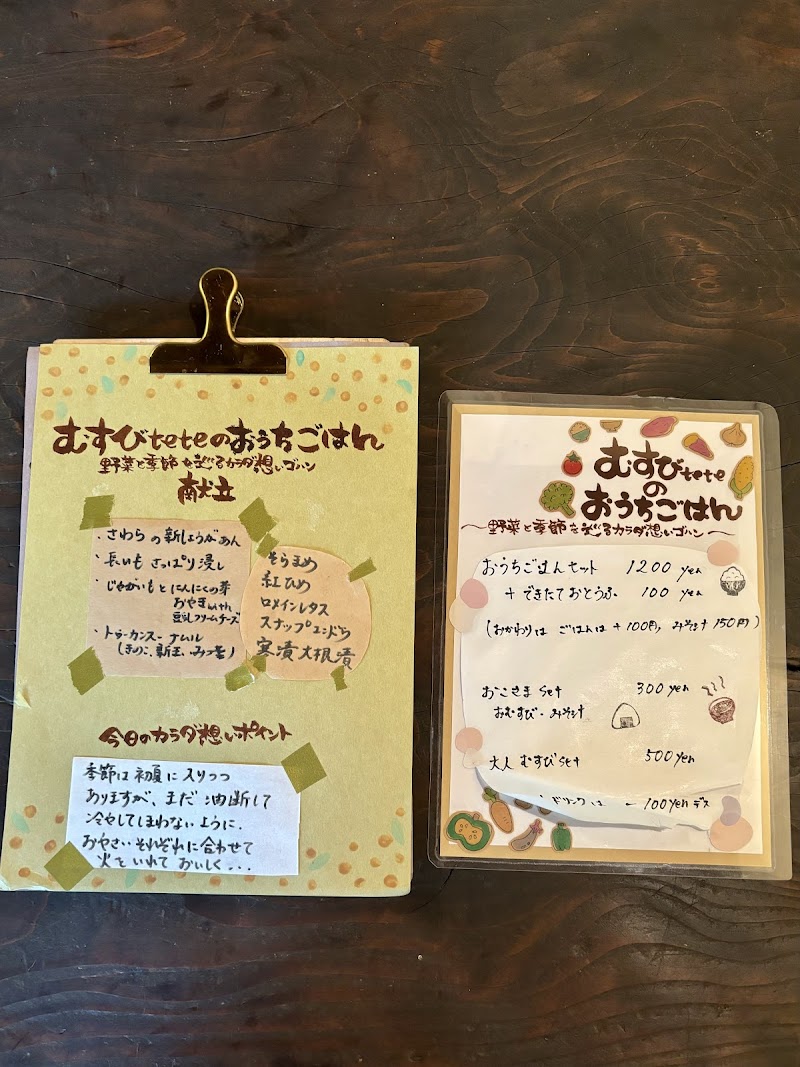 むすびteteのおうちごはん
野菜と季節を巡るカラダ想いゴハン
献立
・さわらの新しょうがあん
・長いもさっぱり浸し
・じゃがいもとにんにくの芽
おやきwith
豆乳クリームチーズ
・トゥーカンスーナムル
(きのこ、新玉、みつ葉)
そらまめ
紅ひめ
ロメインレタス
スナップエンドウ
寒漬大根漬
今日のカラダ想いポイント
季節は初夏に入りつつ
ありますが、まだ油断して
冷やしてしまわないように、
おやさいそれぞれに合わせて
火をいれておいしく...
むすびtete
の
おうちごはん
〜野菜と季節を巡るカラダ想いゴハン〜
おうちごはんセット 1200 yen
+ できたておとうふ 100 yen
(おかわりは ごはんは+100円, みそ汁 150円)
おこさまset 300 yen
おむすび・みそ汁
大人 むすびset 500 yen
ドリンクは -100yenデス